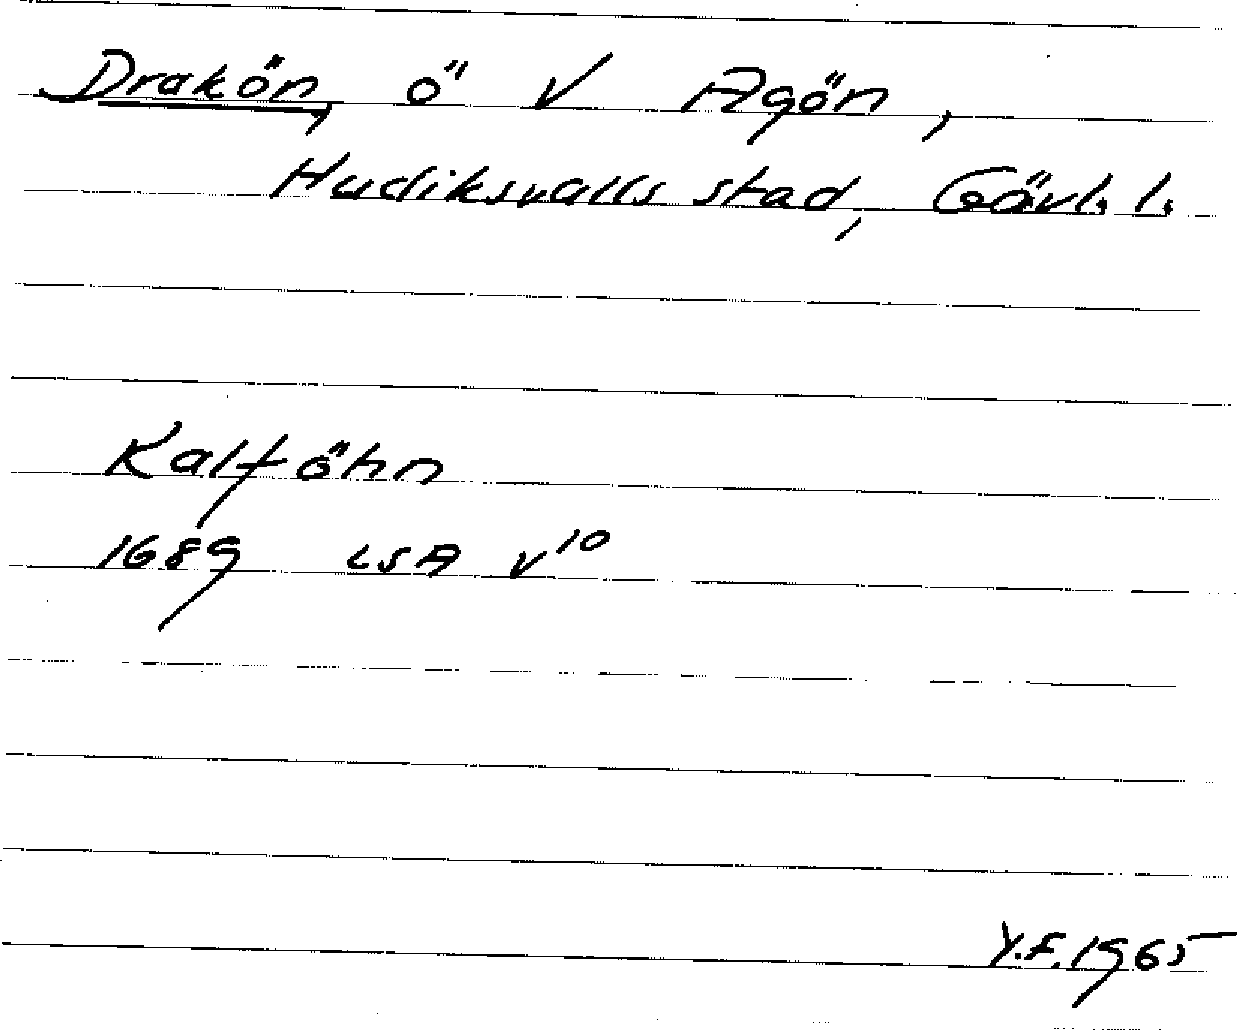 Drakön, ö V Agön,
Hudiksvalls stad, Gävl. l.
Kalföhn
1689 LSA V¹⁰
Y.F. 1965